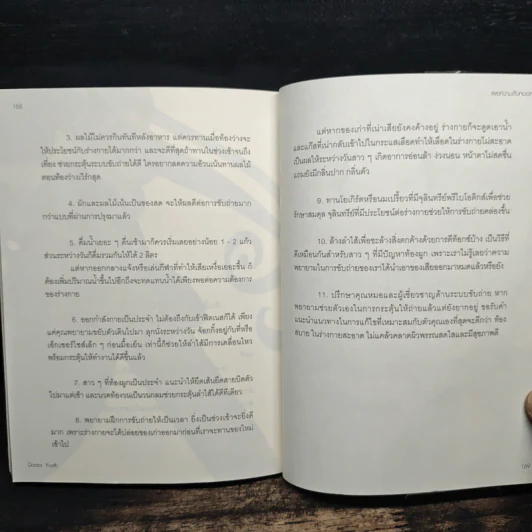 168
3. ผลไม้ไม่ควรกินทันทีหลังอาหาร แต่ควรทานเมื่อท้องว่างจะ
ให้ประโยชน์กับร่างกายได้มากกว่า และจะดีที่สุดถ้าทานในช่วงเช้าจนถึง
เที่ยง ช่วยกระตุ้นระบบขับถ่ายได้ดี ใครอยากลดความอ้วนเน้นทานผลไม้
ตอนท้องว่างเวิร์กสุด
4. ผักและผลไม้เน้นเป็นของสด จะให้ผลดีต่อการขับถ่ายมาก
กว่าแบบที่ผ่านการปรุงมาแล้ว
5. ดื่มน้ำเยอะ ๆ ตื่นเช้ามาก็ควรเริ่มเลยอย่างน้อย 1 - 2 แก้ว
ส่วนระหว่างวันก็ดื่มรวมกันให้ได้ 2 ลิตร
แต่หากออกกลางแจ้งหรือเล่นกีฬาที่ทำให้เสียเหงื่อเยอะขึ้น ก็
ต้องเพิ่มปริมาณน้ำขึ้นไปอีกถึงจะทดแทนน้ำได้เพียงพอต่อความต้องการ
ของร่างกาย
6. ออกกำลังกายเป็นประจำ ไม่ต้องถึงกับเข้าฟิตเนสก็ได้ เพียง
แต่คุณพยายามขยับตัวเดินไปมา ลุกนั่งระหว่างวัน จ๊อกกิ้งอยู่กับที่หรือ
เอ็กเซอร์ไซส์เล็ก ๆ ก่อนมื้อเย็น เท่านี้ก็ช่วยให้ลำไส้มีการเคลื่อนไหว
พร้อมกระตุ้นให้ทำงานได้ดีขึ้นแล้ว
7. สาว ๆ ที่ท้องผูกเป็นประจำ แนะนำให้ยืดเส้นยืดสายบิดตัว
ไปมาแต่เช้า และนวดท้องวนเป็นวงกลมช่วยกระตุ้นลำไส้ได้ดีทีเดียว
8. พยายามฝึกการขับถ่ายให้เป็นเวลา ยิ่งเป็นช่วงเช้าจะยิ่งดี
มาก เพราะร่างกายจะได้ปล่อยของเก่าออกมาก่อนที่เราจะทานของใหม่
เข้าไป
แต่หากของเก่าที่เน่าเสียยังคงค้างอยู่ ร่างกายก็จะดูดเอาน้ำ
และแก๊สที่เน่ากลับเข้าไปในกระแสเลือดทำให้เลือดในร่างกายไม่สะอาด
เป็นผลให้ระหว่างวันสาว ๆ เกิดอาการอ่อนล้า ง่วงนอน หน้าตาไม่สดชื่น
แถมยังมีกลิ่นปาก กลิ่นตัว
9. ทานโยเกิร์ตหรือนมเปรี้ยวที่มีจุลินทรีย์พรีไบโอติกส์เพื่อช่วย
รักษาสมดุล จุลินทรีย์ที่มีประโยชน์ต่อร่างกายช่วยให้การขับถ่ายคล่องขึ้น
10. ล้างลำไส้เพื่อชะล้างสิ่งตกค้างด้วยการดีท็อกซ์บ้าง เป็นวิธีที่
ดีเหมือนกันสำหรับสาว ๆ ที่มีปัญหาท้องผูก เพราะเราไม่รู้เลยว่าความ
พยายามในการขับถ่ายของเราได้นำเอาของเสียออกมาหมดแล้วหรือยัง
11. ปรึกษาคุณหมอและผู้เชี่ยวชาญด้านระบบขับถ่าย หาก
พยายามช่วยตัวเองในการกระตุ้นให้ถ่ายแล้วแต่ยังยากอยู่ ขอรับคำ
แนะนำแนวทางในการแก้ไขที่เหมาะสมกับตัวคุณเองที่สุดจะดีกว่า ท้อง
สบาย ในร่างกายสะอาด ไม่แคล้วคลาดผิวพรรณสดใสและมีสุขภาพดี
169